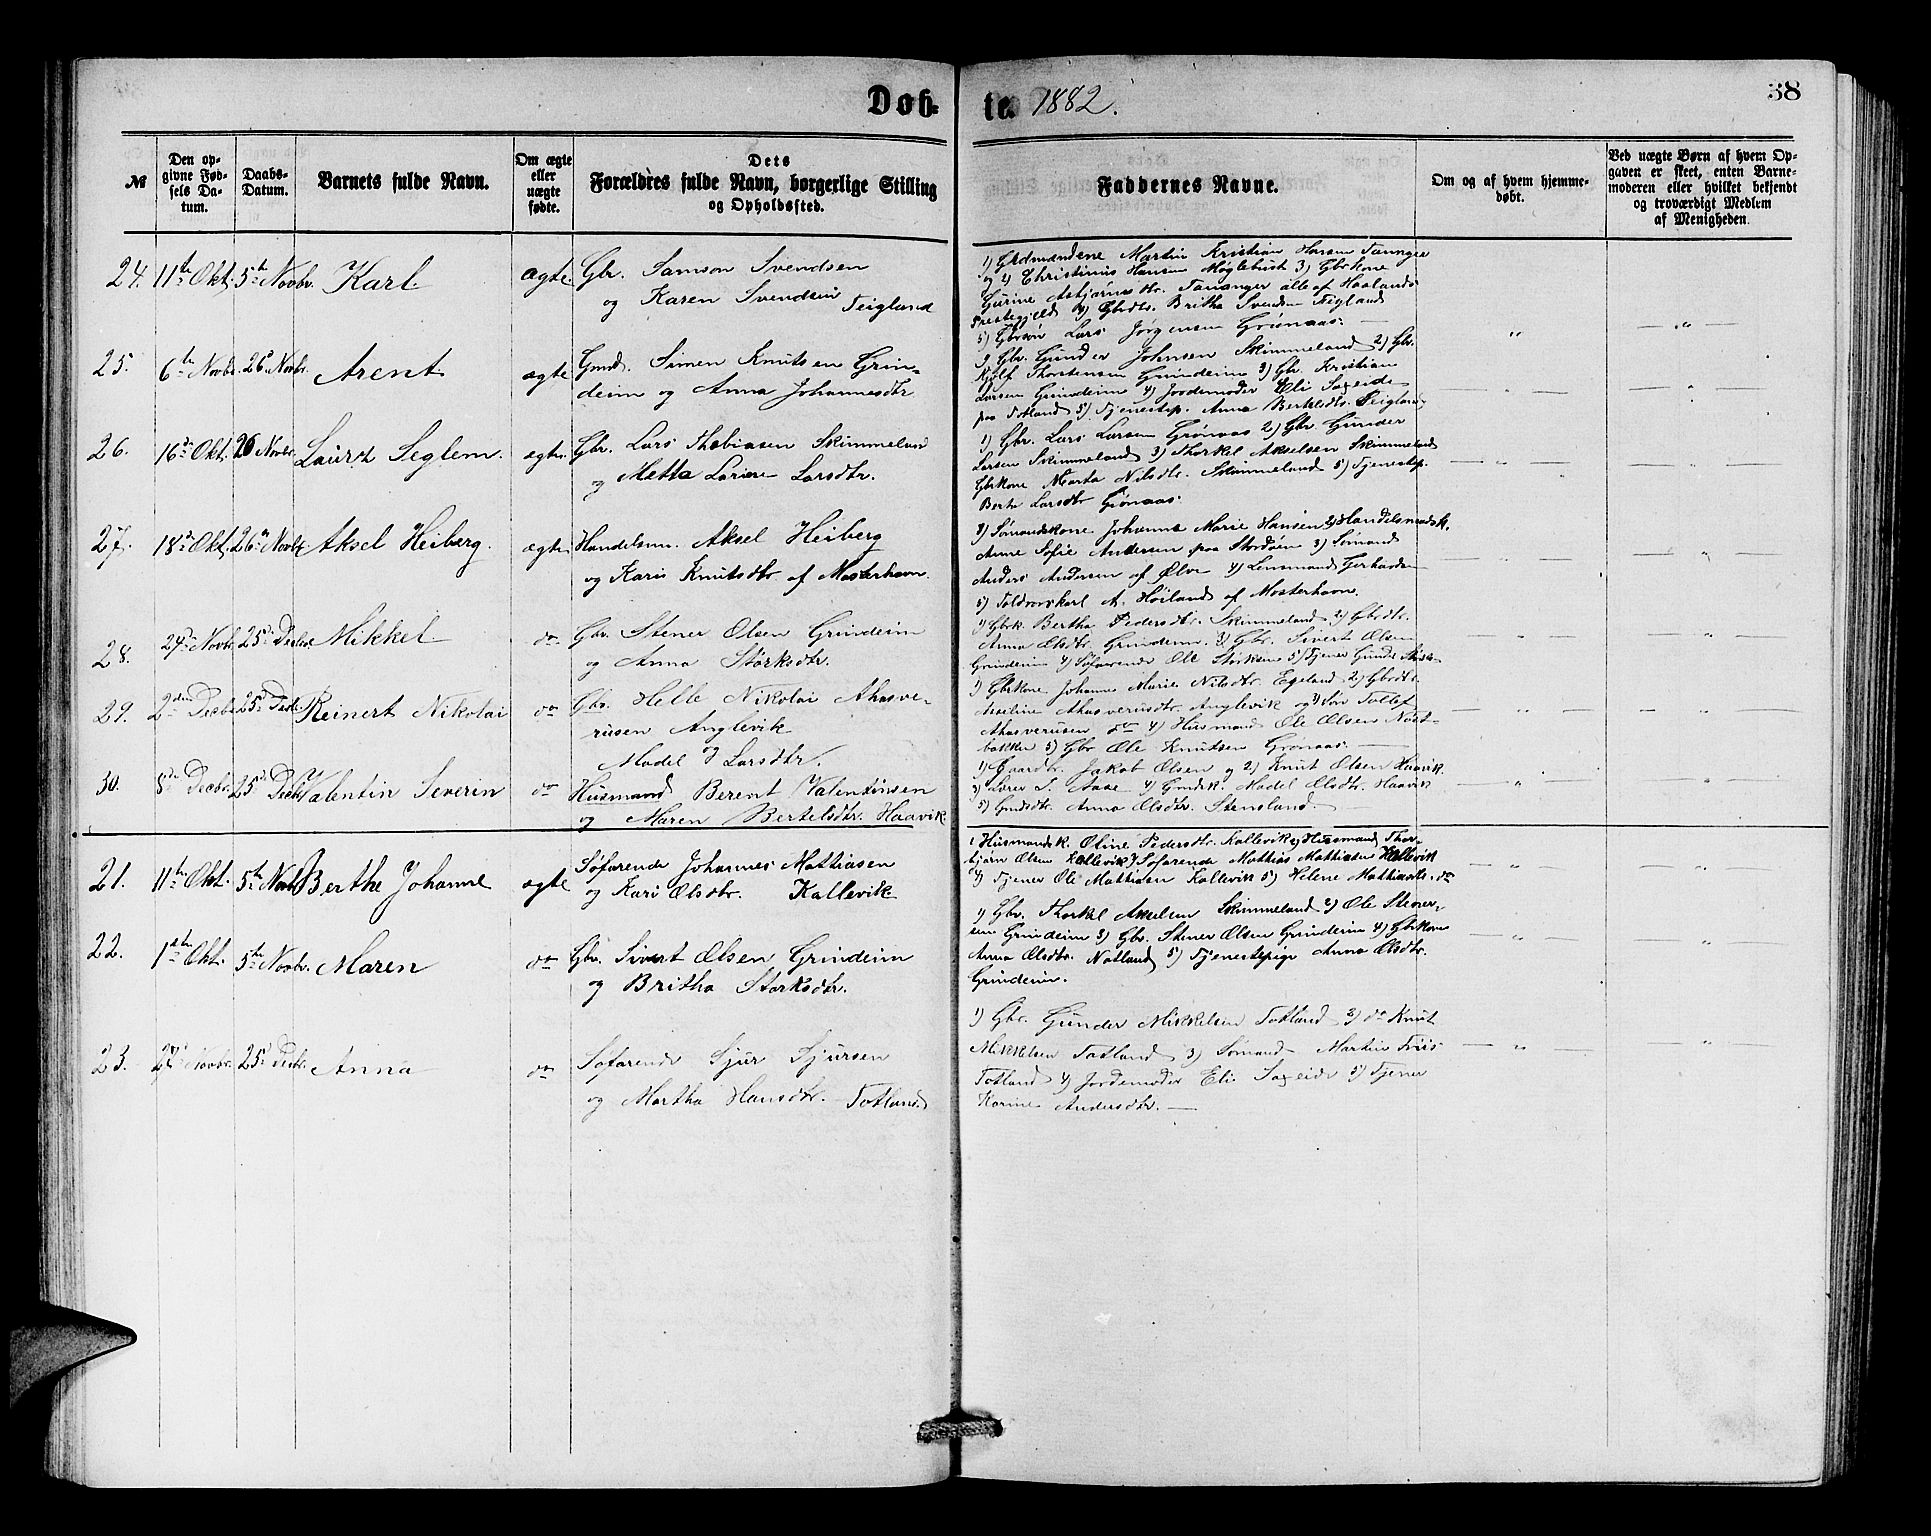 Døb-
te. 1882.
38
№
Den op-
givne Fød-
sels Da-
tum.
Daabs-
Datum.
Barnets fulde Navn.
Om ægte
eller
uægte
fødte.
Dets
Forældres fulde Navn, borgerlige Stilling
og Opholdssted.
Faddernes Navne.
Om og af hvem hjemme-
døbt.
Ved uægte Børn af hvem Op-
gaven er skeet, enten Barne-
moderen eller hvilket bekjendt
og troværdigt Medlem
af Menigheden.
24. 11te Okt. 5te Novbr. Karl ægte Gbr. Samson Svendsen
og Karen Svendsen Teigland
Martin Kristian Hansen Tananger
og 2) Christinius Hansen Møglebust 3) Gbrkone
Gurine Asbjørnsdtr. Tananger alle af Haalands
Prestegjeld 4) Gbrdtr. Britha Svendsen Teigland
5) Gbrsøn Lars Jørgensen Grønaas.
25. 6te Novbr. 26 Novbr. Arent ægte Gmd. Simen Knutsen Grin-
deim og Anna Johannesdtr
1) Gbr. Gunder Johnsen Skimmeland 2) Gbr.
Thorstensen Grindeim 3) Gbr. Kristian
Larsen Grindeim 4) Jordemoder Eli Sageide
paa Totland 5) Tjenestep. Anna Bertelsdtr. Teigland
26. 16de Okt. 26 Novbr. Lauritz Seglem ægte Gbr. Lars Thobiasen Skimmeland
og Metta Larsdtr.
1) Gbr. Lars Larsen Grønaas 2) Gbr. Gunder
Larsen Skimmeland 3) Thorkel Akselsen Skimmeland
Gbrkone Marta Nilsdtr. Skimmeland 5) Tjenestep.
Larsdtr Grønaas.
27. 18de Okt. 26 Novbr Aksel Heiberg. ægte Handelsm. Aksel Heiberg
og Karis Knutsdtr. af Mosterhavn.
1) Sømandskone Johanna Marie Hansen 2) Handelsmandsk.
Anne Sofie Andersen paa Stordøen 3) Sømand
Anders Andersen af Ølve 4) Lensmand
5) Toldrorskarl A. Høiland af Mosterhavn.
28. 24de Novbr. 25de Decbr. Mikkel do Gbr. Stener Olsen Grindeim
og Anna Størksdtr.
1) Gbrk. Bertha Pedersdtr. Skimmeland 2) Gbrdtr.
Anna Olsdtr. Grindeim 3) Gbr. Sivert Olsen
Grindeim 4) Søfarende Ole Størksen 5) Tjener
29. 2den Decbr. 25de Decbr. Reinert Nikolai do Gbr. Helle Nikolai Ahasve-
rusen Anglevik
Madel J Larsdtr.
1) Gbrkone Johanna Marie Nilsdtr. Egeland 2) Gbrdtr.
Ahasverusdtr. Anglevik og 3) Søn Tollef
Ahasverusen do 4) Husmand Ole Olsen Nøst-
bakken 5) Gbr Ole Knutsen Grønaas.
30. 8de Decbr. 25de Decbr. Valentin Severin do Husmand Berent Valentinsen
og Maren Bertelsdtr. Haavik
1) Gaardbr. Jakob Olsen og 2) Knut Olsen Haavik.
3) Lærer S. Aase 4) Gmdsk. Madel Olsdtr. Haavik
5) Gmdsdtr. Anna Olsdtr. Stensland
21. 11te Okt. 5te Novbr Berthe Johanne ægte Søfarende Johannes Mattiasen
og Kari Olsdtr. Kallevik
1 Husmandsk. Oline Pedersdtr. Kallevik 2) Husmand Thor-
bjørn Olsen Kallevik 3) Søfarende Mattias Mattiasen Kallevik
4) Tjener Ole Mattiasen Kallevik 5) Helene Mattiasdtr. do
22. 1ste Okt. 5te Novbr. Maren do Gbr. Sivert Olsen Grindeim
og Britha Størksdtr.
1) Gbr. Thorkel Akselsen Skimmeland 2) Ole Stener-
sen Grindeim 3) Gbr. Stener Olsen Grindeim 4) Gbrkone
Anna Olsdtr. Notland 5) Tjenestepige Anna Olsdtr.
Grindeim.
23. Novbr. 25de Decbr. Anna do Søfarende Sjur Sjursen
og Martha Hansdtr. Totland
1) Gbr. Gunder Mikkelsen Totland 2) do Knut
Mikkelsen Totland 3) Sømand Martin Friis
Totland 4) Jordemoder Eli Sageide 5) Tjener
Karine Andersdtr.